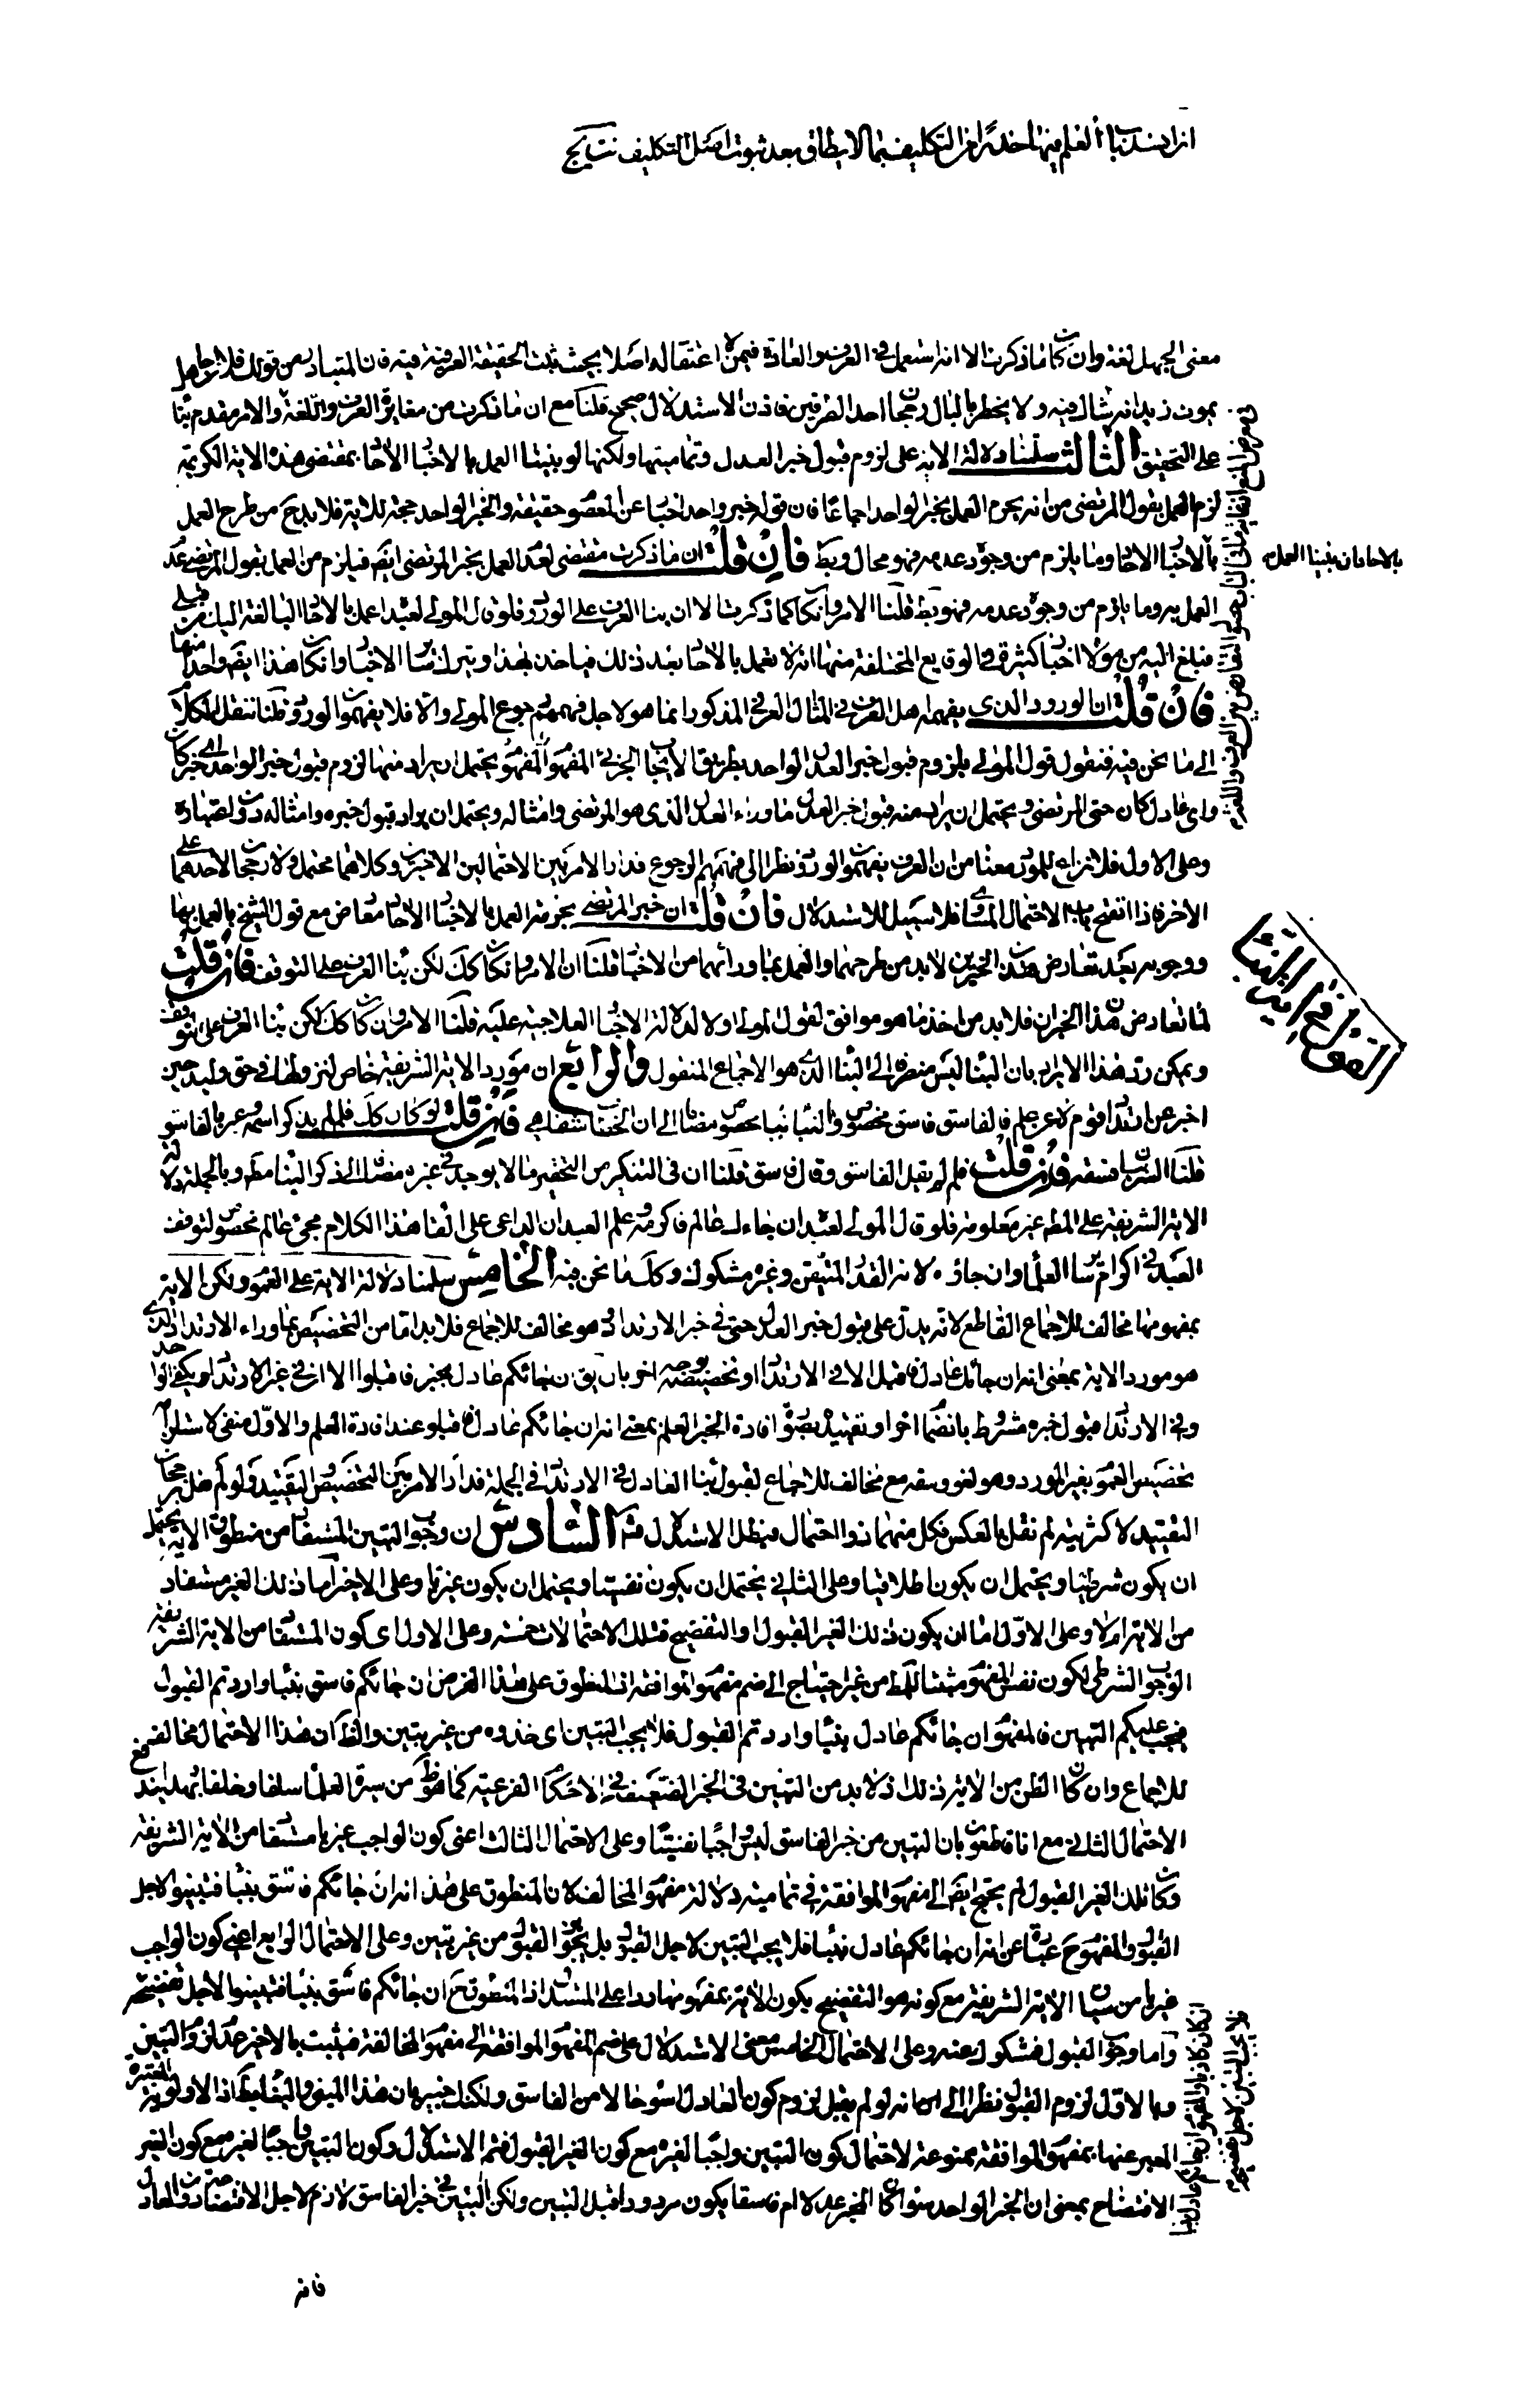 انه لو انسد باب العلم فيها حذرا من التكليف بما لا يطاق بعد ثبوت اصل التكليف
معنى الجهل لغة وان كان ما ذكرت الا انه استعمل في العرف والعادة فيمن لا اعتقاد له اصلا بحيث ثبت الحقيقة العرفية فيه فان المتبادر من قولك فلان جاهل
بموت زيد انه شاك فيه ولا يخطر بالبال رجحان احد الطرفين فاذن الاستدلال صحيح قلنا مع ان ما ذكرت من مغايرة العرف واللغة والامر مقدم بنا
على التحقيق الثالث سلمنا دلالة الاية على لزوم قبول خبر العدل وتماميتها ولكنها لو بنينا العمل بالاخبار الاحاد بمقتضى هذه الاية الكريمة
لزم العمل بقول المرتضى من انه يحرم العمل بخبر الواحد اجماعا فان قوله خبر واحد اخبار عن المعصوم حقيقة والخبر الواحد حجة للاية فلا بد ح من طرح العمل
بالاخبار الاحاد وما يلزم من وجوده عدمه فهو محال وبط فان قلت ان ما ذكرت مقتضى لعدم العمل بخبر المرتضى ايضا فيلزم من العمل بقول المرتضى عدم
العمل به وما يلزم من وجوده عدمه فهو بط قلنا الامر وان كان كما ذكرت الا ان بناء العرف على الورود فلو قال المولى لعبده اعمل بالاخبار البالغة اليك من قبلي
فبلغ اليه من مولاه اخبار كثيرة في الوقايع المختلفة منها انه لا تعمل بالاخبار بعد ذلك فياخذ بهذا ويترك سائر الاخبار وان كان هذا ايضا واحدا منها
فان قلت ان الورود الذي يفهمه اهل العرف في المثال العرفي المذكور انما هو لاجل فهمهم رجوع المولى والا فلا يفهمون الورود قلنا ننقل الكلام
الى ما نحن فيه فنقول قول المولى يلزم قبول خبر العدل الواحد بطريق الايجاب الجزئي المفهوم المفهوم يحتمل ان يراد منها لزوم قبول خبر الواحد اي خبر كان
واي عادل كان حتى المرتضى ويحتمل ان يراد منه قبول خبر العدل ما وراء العدل الذي هو المرتضى وامثاله ويحتمل ان يراد قبول خبره وامثاله دون اعتباره
وعلى الاول فلا نزاع للورود معنا من ان العرف يفهمون الورود نظرا الى فهمهم الرجوع فدار الامر بين الاحتمالين الاخيرين وكلاهما محتمل ولا رجحان لاحدهما على
الاخر فاذا انفتح باب الاحتمال المساوي فلا سبيل للاستدلال فان قلت ان خبر المرتضى بحرمة العمل بالاخبار الاحاد معارض مع قول الشيخ بالعمل بها
ووجوبه بعد تعارض هذين الخبرين لا بد من طرحهما والعمل بما ورائهما من الاخبار قلنا ان الامر وان كان كك لكن بناء العرف على التوقف فان قلت
لما تعارض هذان الخبران فلا بد من اخذ ما هو موافق لقول المولى اولا لدلالة الاخبار العلاجية عليه قلنا الامر وان كان كك لكن بناء العرف على التوقف
ويمكن رد هذا الايراد بان البناء ليس منصرفا الى البناء الذي هو الاجماع المنقول والرابع ان مورد الاية الشريفة خاص لنزولها في حق وليد حين
اخبر عن ارتداد قوم لا عن علم فالفاسق فاسق مخصوص والنبأ نبأ مخصوص مضافا الى ان الخطاب شفاهي فان قلت لو كان كك فلم لم يذكر اسمه وعبر بالفاسق
قلنا السر بيان فسقه فان قلت فلم لم يقل الفاسق وقال فاسق قلنا ان في التنكير من التحقير ما لا يوجد في غيره مضافا الى ذكر البناء مطه وبالجملة دلالة
الاية الشريفة على المط غير معلومة فلو قال المولى لعبده ان جاءك عالم فاكرمه وعلم العبد ان الداعي على القاء هذا الكلام مجيء عالم مخصوص لتوقف
العبد في اكرام سائر العلماء وان جاؤه لانه القدر المتيقن وغيره مشكوك وكك ما نحن فيه الخامس سلمنا دلالة الاية على العموم ولكن الاية
بمفهومها مخالف للاجماع القاطع لانه يدل على قبول خبر العدل حتى في خبر الارتداد وهو مخالف للاجماع فلا بد اما من التخصيص بما وراء الارتداد الذي
هو مورد الاية بمعنى انه ان جائك عادل فاقبل الا في الارتداد او تخصيصه بوجه اخر بان يق ان جائكم عادل بخبر فاقبلوا الا ان في غير الارتداد يكفي الواحد
وفي الارتداد قبول خبره مشروط بانضمام اخر او تقييده بصورة افادة الخبر العلم بمعنى انه ان جائكم عادل فاقبلوا عند افادة العلم والاول منفي لاستلزامه
تخصيص العموم بغير المورد وهو لغو وسفه مع مخالف للاجماع لقبول نبأ العادل في الارتداد في الجملة فدار الامر بين التخصيص والتقييد ولو لم نقل برجحان
التقييد لاكثريته لم نقل بالعكس فكل منهما ذو احتمال فبطل الاستدلال منه السادس ان وجوب التبين المستفاد من منطوق الاية يحتمل
ان يكون شرطيا ويحتمل ان يكون اطلاقيا وعلى الثاني يحتمل ان يكون نفسيا ويحتمل ان يكون غيريا وعلى الاخير اما ذلك الغير مستفاد
من الاية ام لا وعلى الاول اما ان يكون ذلك الغير القبول او التفضيح فتلك الاحتمالات خمسة وعلى الاول اي كون المستفاد من الاية الشريفة
الوجوب الشرطي لكون نفس المفهوم مثبتا للمط من غير احتياج الى ضم مفهوم الموافقة اذ المنطوق على هذا الفرض ان جائكم فاسق بنبأ واردتم القبول
فيجب عليكم التبين فالمفهوم ان جائكم عادل بنبأ واردتم القبول فلا يجب التبين اي خذوه من غير تبين والظ ان هذا الاحتمال مخالف
للاجماع وان كان الظن من الاية ذلك اذ لا بد من التبين في الخبر الضعيف في الاحكام الفرعية كما هو ظ من سيرة العلماء سلفا وخلفا
الاحتمال الثاني مع انا قاطعون بان التبين من خبر الفاسق ليس واجبا نفسيا وعلى الاحتمال الثالث اعني كون الواجب غيريا مستفادا من الاية الشريفة
وكان ذلك الغير القبول لم يحتج ايضا الى مفهوم الموافقة في تمامية دلالة مفهوم المخالفة لان المنطوق على هذا انه ان جائكم فاسق بنبأ فتبينوا لاجل
القبول والمفهوم ح عبارة عن انه ان جائكم عادل بنبأ فلا يجب التبين لاجل القبول بل يجوز القبول من غير تبين وعلى الاحتمال الرابع اعني كون الواجب
غيريا من بيان الاية الشريفة مع كونه هو التفضيح يكون الاية بمفهومها ردا على المستدل اذ المنطوق ح ان جائكم فاسق بنبأ فتبينوا لاجل تفضيحه
واما وجوب القبول فمشكوك عنه وعلى الاحتمال الخامس معنى الاستدلال على ضم المفهوم الموافقة الى مفهوم المخالفة فيثبت بالاخير عدم لزوم التبين
وبالاول لزوم القبول نظرا الى انه لو لم يقبل لزم كون العادل اسوء حالا من الفاسق ولكنك خبير بان هذا المبنى والبناء بط اذ الاولوية
المعبر عنها بمفهوم الموافقة ممنوعة لاحتمال كون التبين واجبا لغيره مع كون الغير القبول فتم الاستدلال وكون التبين واجبا لغيره مع كون الغير
الافتضاح بمعنى ان الخبر الواحد سواء كان المخبر عدلا ام فاسقا يكون مردودا قبل التبين ولكن التبين في خبر الفاسق لازم لاجل الافتضاح دون العادل
فانه
القول في اخبار